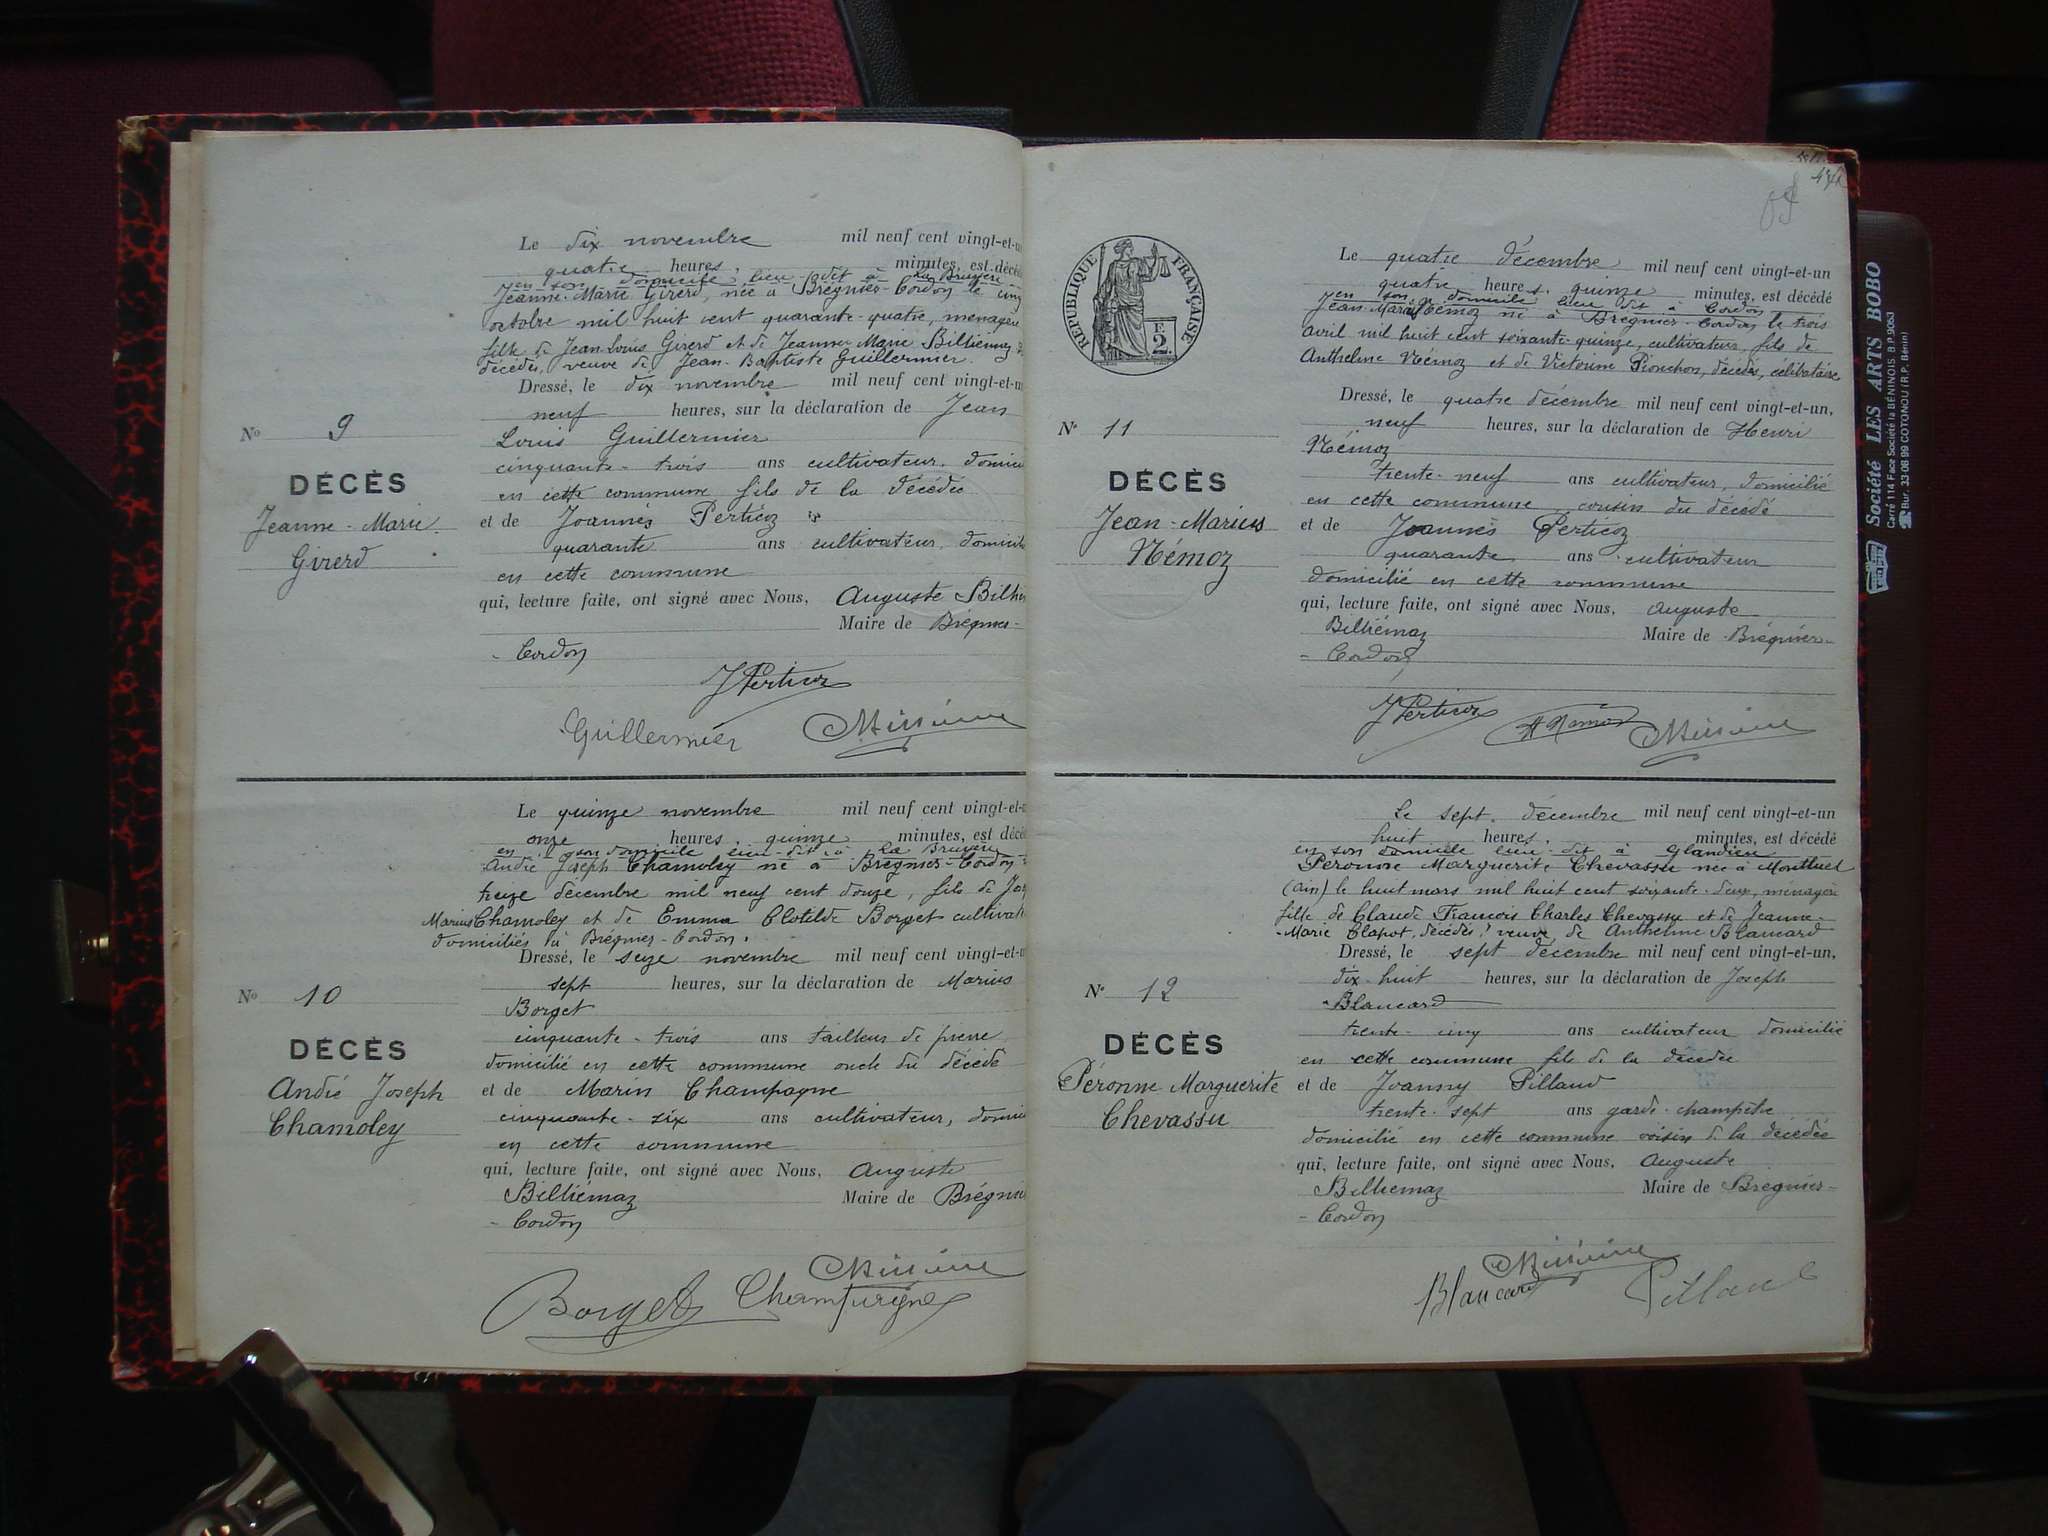 Le dix novembre mil neuf cent vingt-et-un
quatre heures, minutes, est décédé
en son domicile lieu-dit à La Bruyère
Jeanne-Marie Girerd, née à Brégnier-Cordon le cinq
octobre mil huit cent quarante-quatre, ménagère
fille de Jean Louis Girerd et de Jeanne Marie Billiémaz
décédés, veuve de Jean-Baptiste Guillermier.
Dressé, le dix novembre mil neuf cent vingt-et-un
neuf heures, sur la déclaration de Jean
N° 9
Louis Guillermier
cinquante-trois ans cultivateur, domici
DÉCÈS
en cette commune fils de la décédée
Jeanne-Marie
et de Joannès Perticoz
quarante ans cultivateur, domicili
Girerd
en cette commune
qui, lecture faite, ont signé avec Nous, Auguste Billié
Maire de Brégnier-
-Cordon
J Perticoz
Guillermier
Le quinze novembre mil neuf cent vingt-et-u
onze heures, quinze minutes, est décéd
en son domicile lieu-dit à La Bruyère
André Joseph Chamoley né à Brégnier-Cordon
treize décembre mil neuf cent douze, fils de
Marius Chamoley et de Emma Clotilde Borget cultivat
domiciliés à Brégnier-Cordon.
Dressé, le seize novembre mil neuf cent vingt-et-u
sept heures, sur la déclaration de Marius
N° 10
Borget
cinquante-trois ans tailleur de pierre
DÉCÈS
domicilié en cette commune oncle du décédé
André Joseph
et de Marin Champagne
Chamoley
cinquante-six ans cultivateur, domici
en cette commune
qui, lecture faite, ont signé avec Nous, Auguste
Billiémaz Maire de Brégnier
-Cordon
Borget
RÉPUBLIQUE FRANÇAISE
2
Le quatre décembre mil neuf cent vingt-et-un
quatre heures, quinze minutes, est décédé
en son domicile lieu dit à Cordon
Jean-Marius Némoz né à Brégnier-Cordon le trois
avril mil huit cent soixante-quinze, cultivateur, fils de
Anthelme Némoz et de Victorine Pionchon, décédés, célibataire
Dressé, le quatre décembre mil neuf cent vingt-et-un,
N° 11
neuf heures, sur la déclaration de Henri
Némoz
DÉCÈS
trente-neuf ans cultivateur, domicilié
en cette commune cousin du décédé
Jean-Marius
et de Joannès Perticoz
Némoz
quarante ans cultivateur
domicilié en cette commune
qui, lecture faite, ont signé avec Nous, Auguste
Billiémaz Maire de Brégnier-
-Cordon
J Perticoz
H Némoz
Le sept décembre mil neuf cent vingt-et-un
huit heures, minutes, est décédé
en son domicile lieu-dit à Glandieu
Péronne Marguerite Chevassu née à Montluel
(Ain) le huit mars mil huit cent soixante-deux, ménagère
fille de Claude François Charles Chevassu et de Jeanne-
-Marie Clapot, décédés, veuve de Anthelme Blancard
Dressé, le sept décembre mil neuf cent vingt-et-un,
N° 12
dix-huit heures, sur la déclaration de Joseph
Blancard
DÉCÈS
trente-cinq ans cultivateur domicilié
en cette commune fils de la décédée
Péronne Marguerite
et de Joanny Pillaud
Chevassu
trente-sept ans garde-champêtre
domicilié en cette commune voisin de la décédée
qui, lecture faite, ont signé avec Nous, Auguste
Billiémaz Maire de Brégnier-
-Cordon
Blancard
Société LES ARTS BOBO
Carré 114 Face Société la BÉNINOIS. B.P. 9053
Bur. 33-08 99 COTONOU (R.P. Bénin)